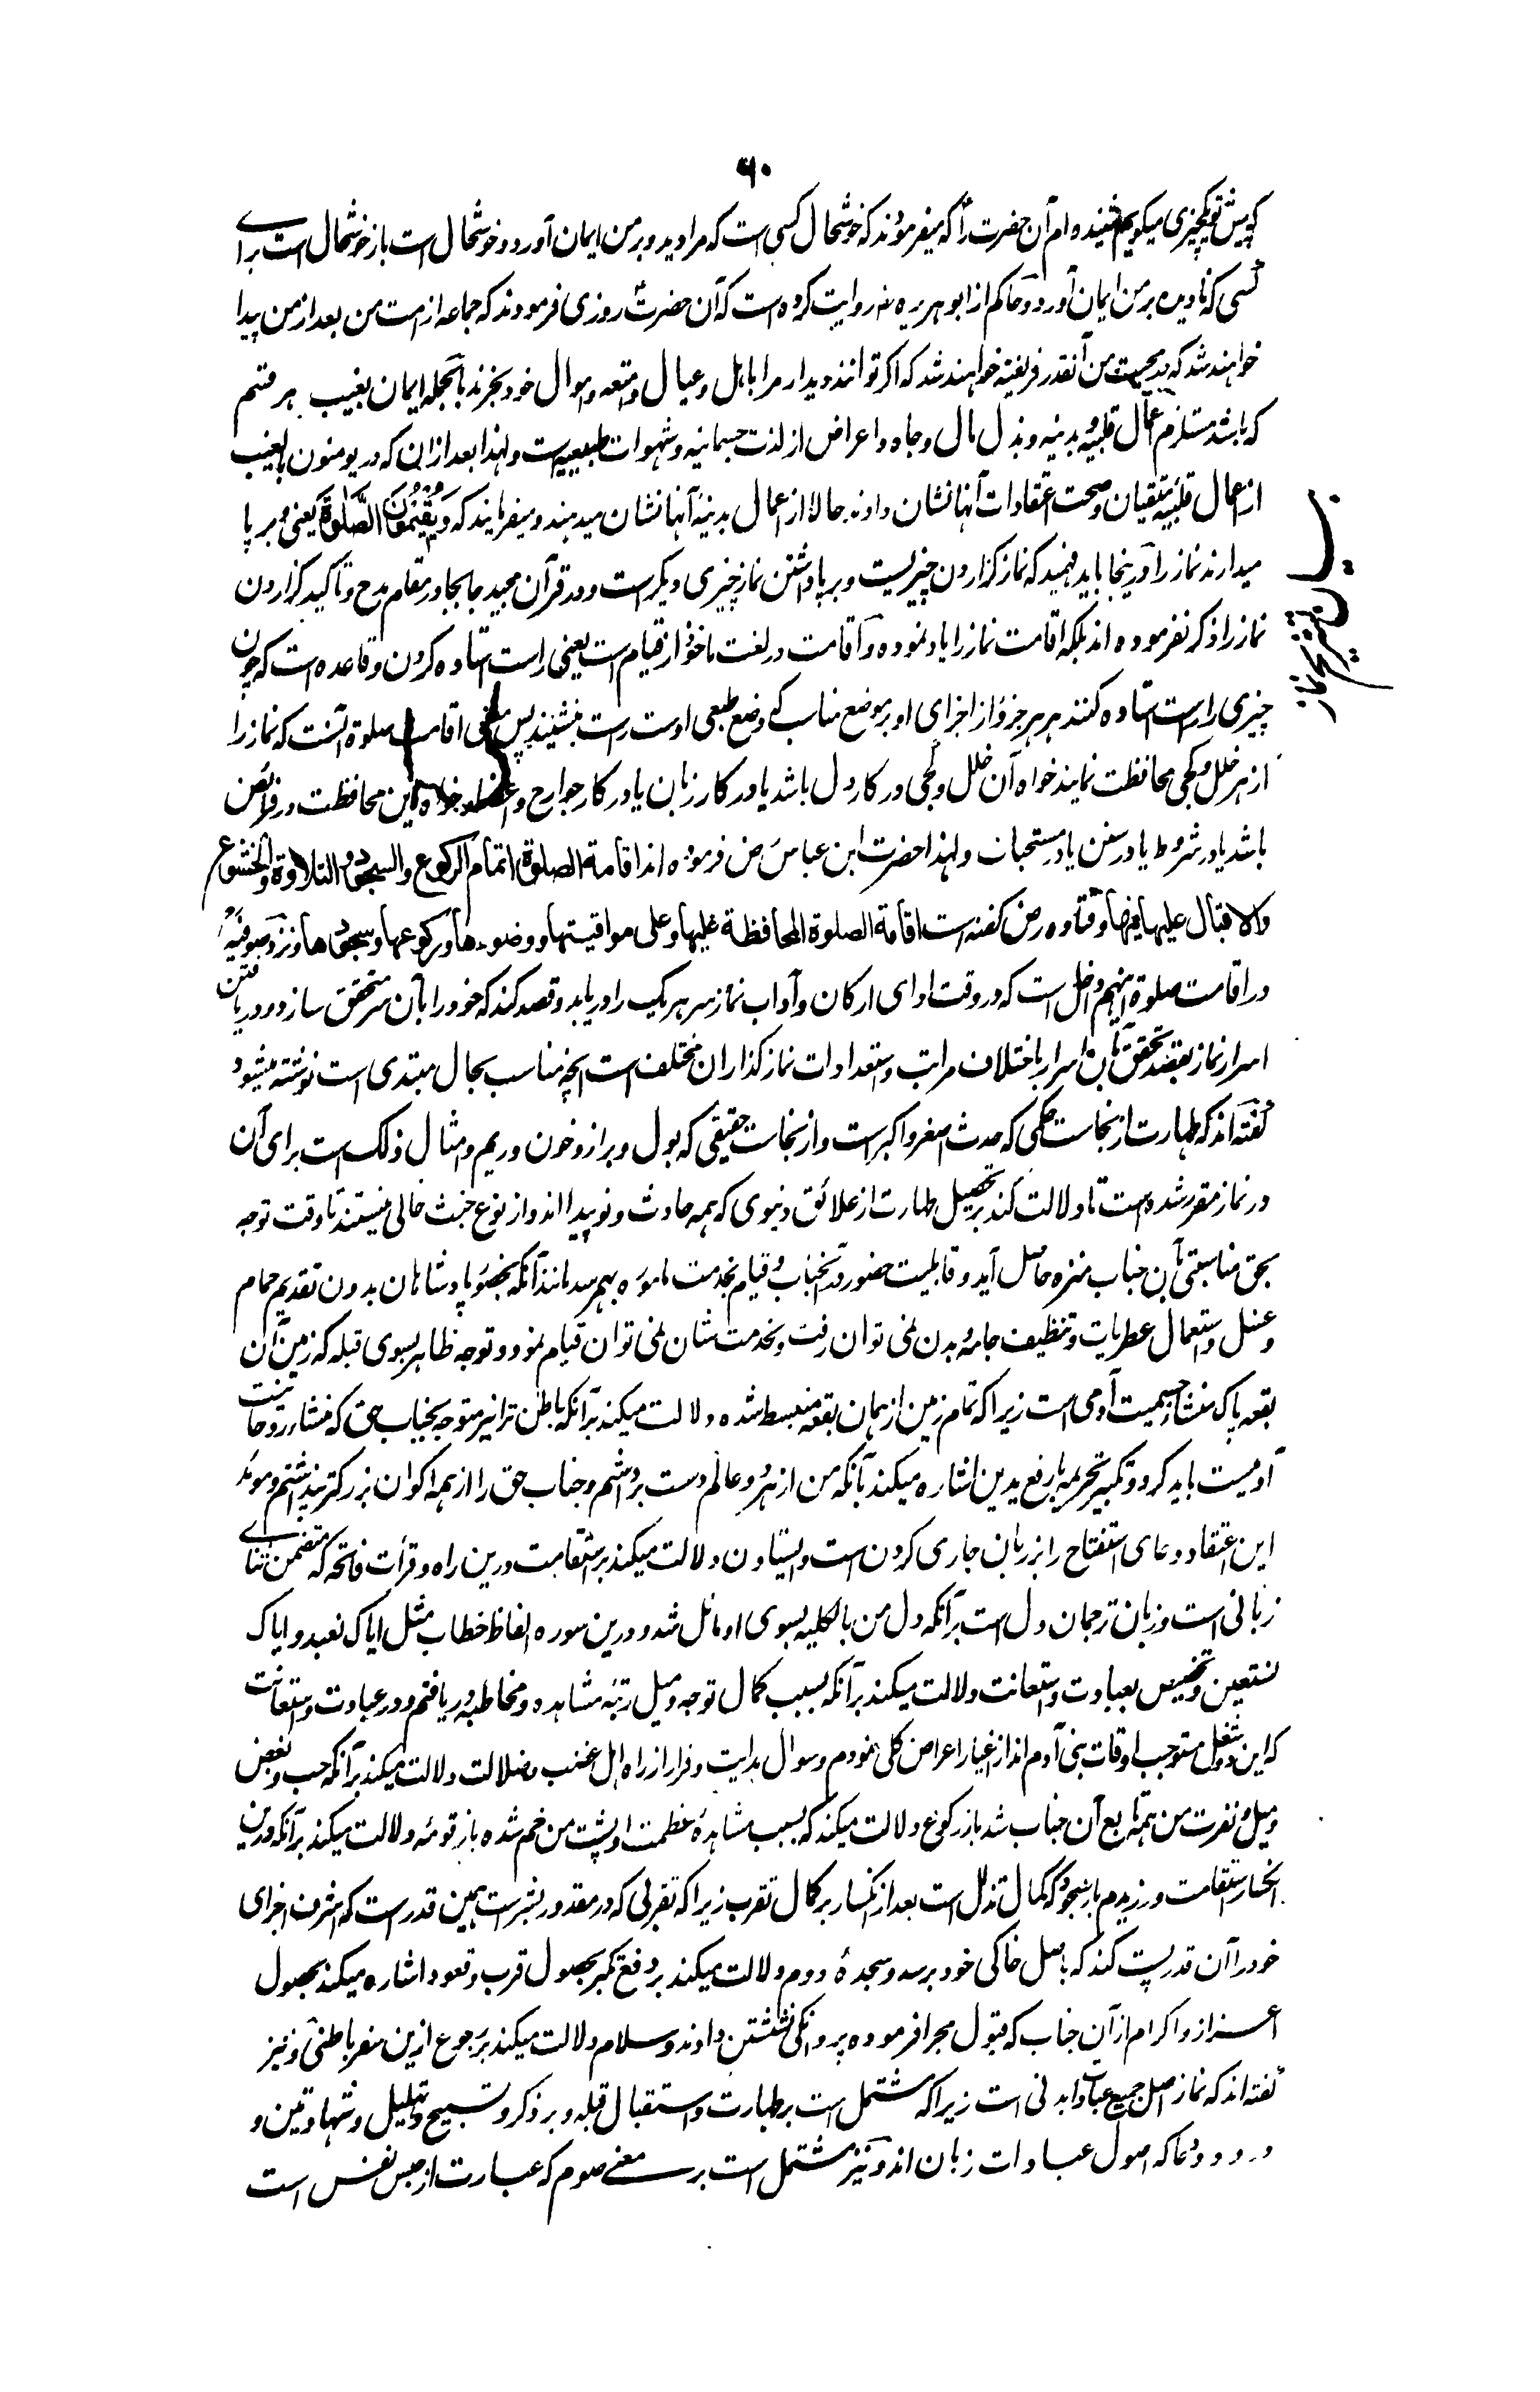 ۶۰
که پیش تو یکچیزی میگویم شنیده ام آن حضرت را که میفرمودند که خوشحال کسی است که مرا دید و بر من ایمان آورد و خوشحال است باز خوشحال است برای
کسی که نادیده بر من ایمان آورد و حاکم از ابو هریره رض روایت کرده است که آن حضرت روزی فرمودند که جماعه از امت من بعد از من پیدا
خواهند شد که در محبت من آنقدر فریفته خواهند شد که اگر توانند دیدار مرا با اهل و عیال و امتعه و اموال خود بخرند بالجمله ایمان بغیب هر قسم
که باشد مستلزم اعمال قلبیه و بدنیه و بذل مال و جاه و اعراض از لذت جسمانیه و شهوات طبیعیه است و لهذا بعد از ان که در یومنون بالغیب
از اعمال قلبیه متقیان و صحت اعتقادات آنها نشان دادند حالا از اعمال بدنیه آنها نشان میدهند و میفرمایند که وَيُقِيمُونَ الصَّلٰوةَ یعنی و بر پا
میدارند نماز را درینجا باید فهمید که نماز گزاردن چیزیست و برپا داشتن نماز چیزی دیگرست و در قرآن مجید جابجا در مقام مدح و تاکید گزاردن
نماز را ذکر نفرموده اند بلکه اقامت نماز را یاد نموده و اقامت در لغت ماخوذ از قیام است یعنی راست استاده کردن و قاعده است که چون
چیزی را راست استاده کنند هر هر جزو از اجزای او بر موضع مناسب که وضع طبعی اوست راست بنشیند پس معنی اقامت صلوة آنست که نماز را
از هر خلل و کجی محافظت نمایند خواه آن خلل و کجی در کار دل باشد یا در کار زبان یا در کار جوارح و اعضا و خواه این محافظت در فرائض
باشد یا در شروط یا در سنن یا در مستحبات و لهذا حضرت ابن عباس رض فرموده اند اقامة الصلوة اتمام الرکوع والسجود والتلاوة والخشوع
والاقبال علیها فیها و قتاده رض گفته است اقامة الصلوة المحافظة علیها وعلی مواقیتها ووضوءها ورکوعها وسجودها و نزد صوفیه
در اقامت صلوة اینهم داخل است که در وقت ادای ارکان و آداب نماز سر هر یک را دریابد و قصد کند که خود را بآن سر متحقق سازد و دریافتن
اسرار نماز بقصد تحقق بآن اسرار باختلاف مراتب و استعدادات نماز گذاران مختلف است انچه مناسب بحال مبتدی است نوشته میشود
گفته اند که طهارت از نجاست حکمی که حدث اصغر و اکبر است و از نجاست حقیقی که بول و براز و خون و ریم و امثال ذلک است برای آن
در نماز مقرر شده است تا دلالت کند بر تحصیل طهارت از علائق دنیوی که همه حادث و نو پیدا اند و از نوع خبث خالی نیستند تا وقت توجه
بحق مناسبتی بآن جناب منزه حاصل آید و قابلیت حضور در آنجناب و قیام بخدمت ماموره بهم رسد مانند آنکه بحضور پادشاهان بدون تقدیم حمام
و غسل و استعمال عطریات و تنظیف جامه و بدن نمی توان رفت و بخدمت شان نمی توان قیام نمود و توجه ظاهر بسوی قبله که زمین آن
بقعه پاک منشاء جسمیت آدمی است زیرا که تمام زمین از همان بقعه منبسط شده دلالت میکند بر آنکه باطن ترا نیز متوجه بجناب حق که منشاء روحانیت
آدمیست باید کرد و تکبیر تحریمه با رفع یدین اشاره میکند بآنکه من از هر دو عالم دست برداشتم و جناب حق را از همه اکوان بزرگتر پنداشتم و موئد
این اعتقاد دعای استفتاح را بر زبان جاری کردن است و ایستادن دلالت میکند بر استقامت درین راه و قرأت فاتحه که متضمن ثنای
زبانی است و زبان ترجمان دل است بر آنکه دل من بالکلیه بسوی او مائل شد و درین سوره الفاظ خطاب مثل ایاک نعبد و ایاک
نستعین و تخصیص بعبادت و استعانت دلالت میکند بر آنکه بسبب کمال توجه و میل رتبه مشاهده و مخاطبه دریافتم و در عبادت و استعانت
که این دو شغل مستوجب اوقات بنی آدم اند از غیار اعراض کلی نمودم و سوال هدایت و فرار از راه اهل غضب و ضلالت دلالت میکند بر آنکه حب و بغض
و میل و نفرت من همه تابع آن جناب شد باز رکوع دلالت میکند که بسبب مشاهده عظمت او پشت من خم شده باز قومه دلالت میکند بر آنکه درین
انکسار استقامت ورزیدم باز سجود که کمال تذلل است بعد از انکسار بر کمال تقرب زیرا که تقربی که در مقدور بشر است همین قدر است که اشرف اجزای
خود را آن قدر پست کند که باصل خاکی خود برسد و سجدهٔ دوم دلالت میکند بر دفع تکبر بحصول قرب و قعود اشاره میکند بحصول
اعزاز و اکرام از آن جناب که قبول مجرا فرموده پروانگی نشستن دادند و سلام دلالت میکند بر رجوع ازین سفر باطنی و نیز
گفته اند که نماز اصل جمیع عبادات بدنی است زیرا که مشتمل است بر طهارت و استقبال قبله و بر ذکر و تسبیح و تهلیل و شهادتین و
درود و دعا که اصول عبادات زبان اند و نیز مشتمل است بر معنی صوم که عبارت از حبس نفس است